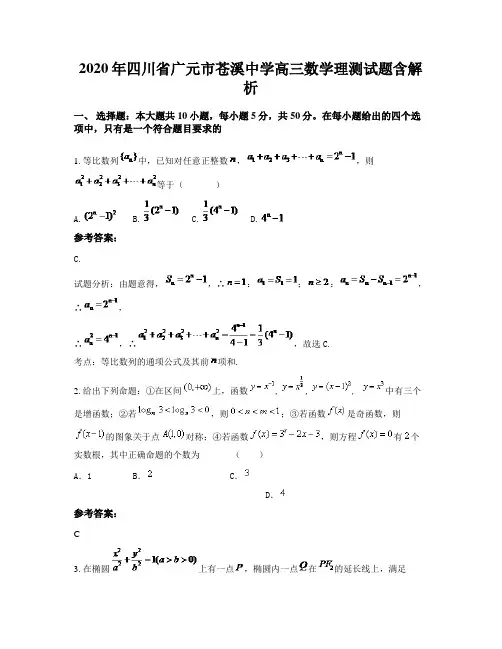 2020年四川省广元市苍溪中学高三数学理测试题含解
析
一、 选择题：本大题共10小题，每小题5分，共50分。在每小题给出的四个选
项中，只有是一个符合题目要求的
1. 等比数列{aₙ}中，已知对任意正整数n，a₁+a₂+a₃+⋯+aₙ=2ⁿ-1，则
a₁²+a₂²+a₃²+⋯+aₙ²等于（ ）
A. (2ⁿ-1)² B. 1/3(2ⁿ-1) C. 1/3(4ⁿ-1) D. 4ⁿ-1
参考答案：
C.
试题分析：由题意得，Sₙ=2ⁿ-1，∴n=1；a₁=S₁=1；n≥2；aₙ=Sₙ-Sₙ₋₁=2ⁿ⁻¹，
∴aₙ=2ⁿ⁻¹，
∴aₙ²=4ⁿ⁻¹，∴a₁²+a₂²+a₃²+⋯+aₙ²=，故选C.
考点：等比数列的通项公式及其前n项和.
2. 给出下列命题：①在区间(0,+∞)上，函数y=x⁻¹，y=x^(1/2)，y=(x-1)²，y=x³中有三个
是增函数；②若logₘ3<logₙ3<0，则0<n<m<1；③若函数f(x)是奇函数，则
f(x-1)的图象关于点A(1,0)对称；④若函数f(x)=3ˣ-2x-3，则方程f(x)=0有2个
实数根，其中正确命题的个数为 （ ）
A．1 B．2 C．3
D．4
参考答案：
C
3. 在椭圆x²/a²+y²/b²=1(a>b>0)上有一点P，椭圆内一点Q在PF₂的延长线上，满足